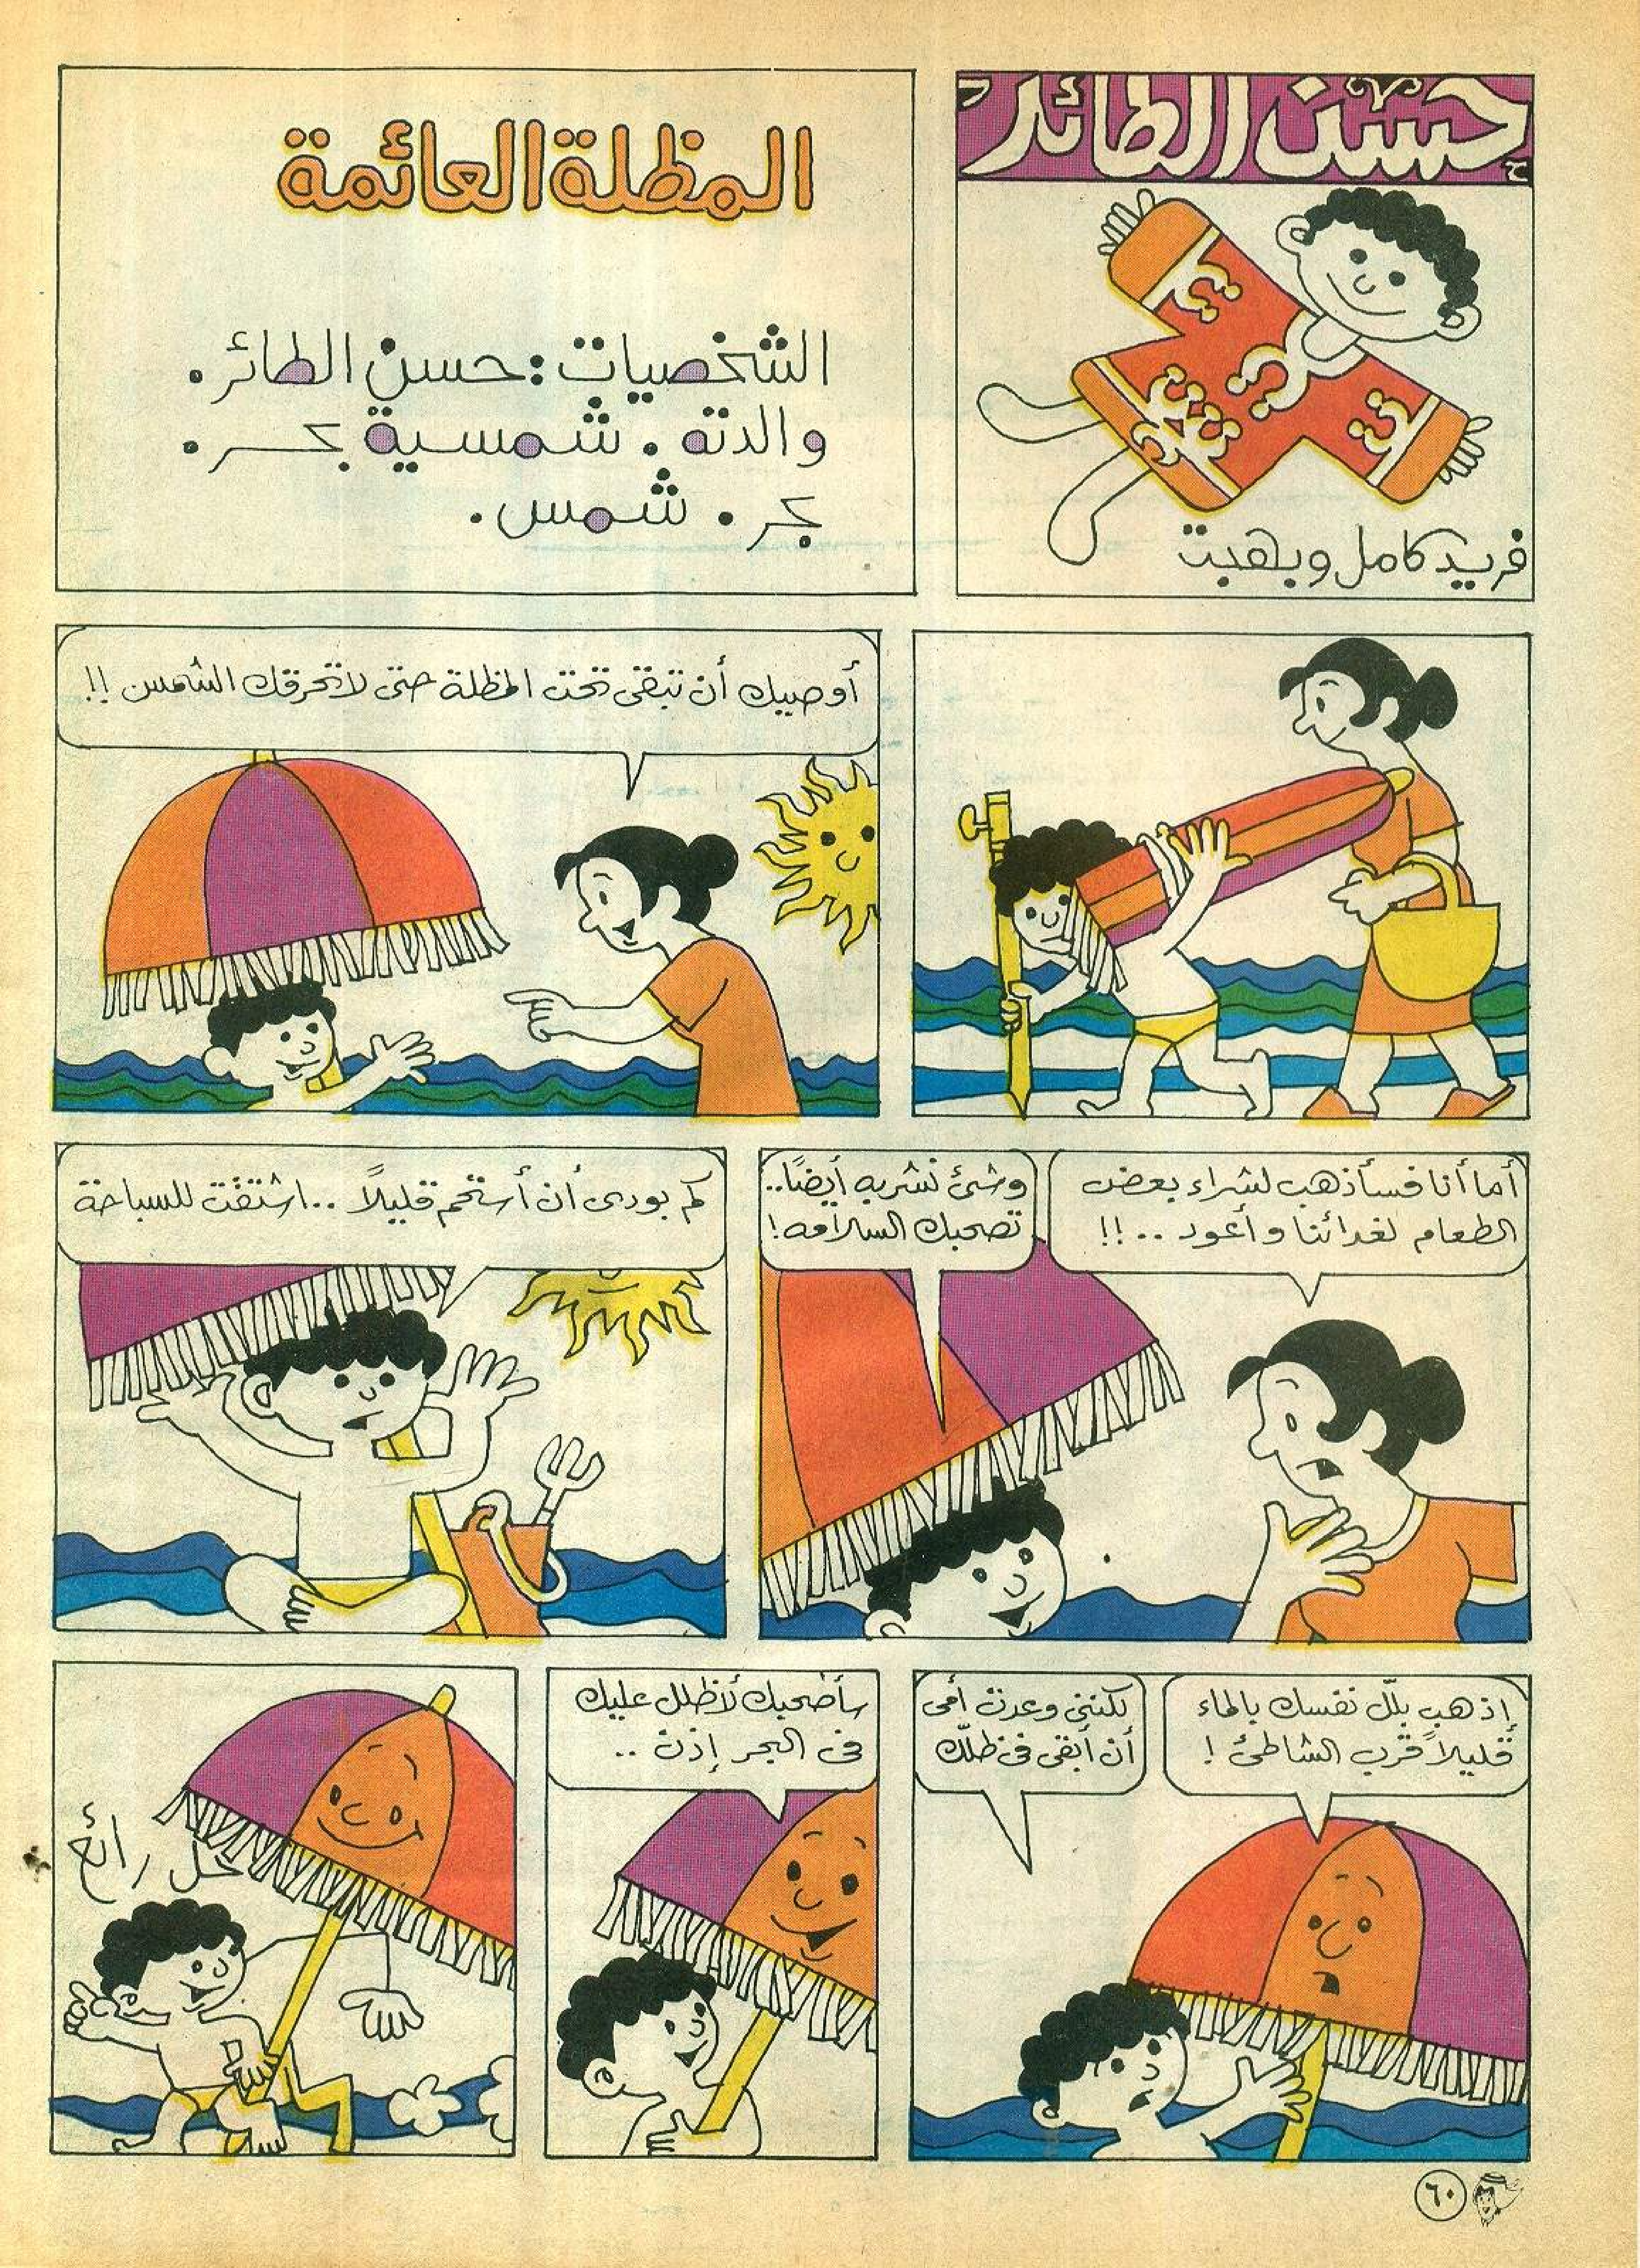 حسن الطائر
فريد كامل وبهجت
المظلة العائمة
الشخصيات : حسن الطائر .
والدته . شمسية بحر .
بحر . شمس .
أوصيك أن تبقى تحت المظلة حتى لا تحرقك الشمس !!
أما أنا فسأذهب لشراء بعض
الطعام لغدائنا وأعود ..!!
وشئ نشربه أيضًا..
تصحبك السلامه !
كم بودى أن أستحم قليلاً .. اشتقت للسباحة
إذهب بلّل نفسك بالماء
قليلاً قرب الشاطئ !
لكننى وعدت أمى
أن أبقى فى ظلّك
سأصحبك لأظلل عليك
فى البحر إذن ..
حل رائع
٦٠